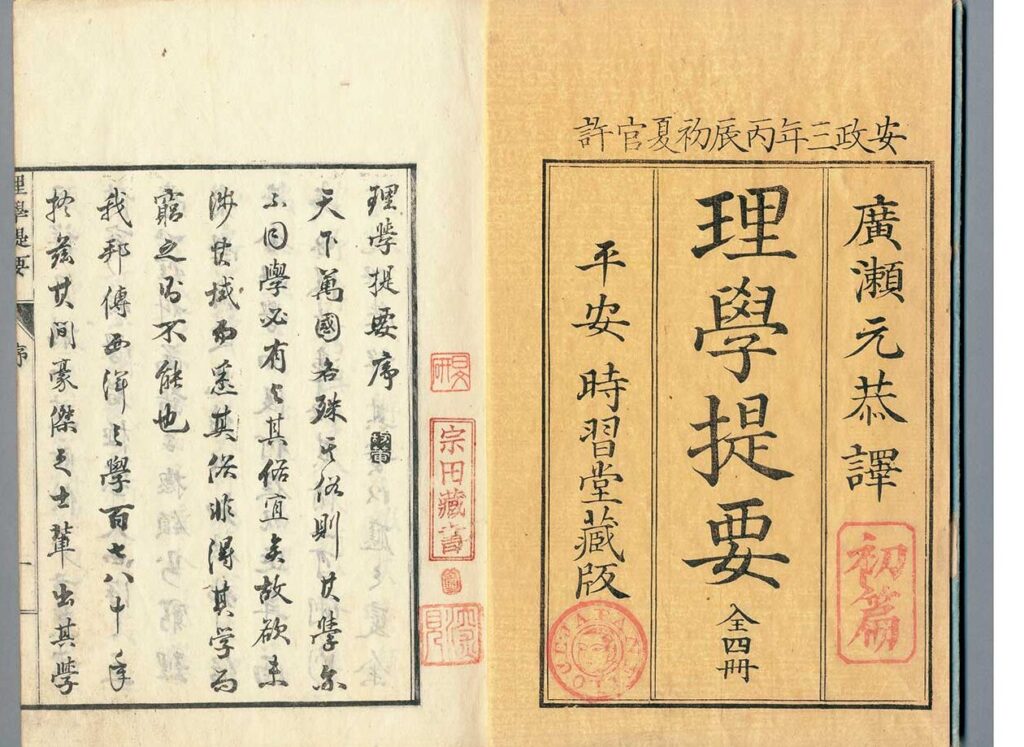 安政三年丙辰初夏官許
廣瀬元恭譯
初篇
理學提要 全四冊
平安 時習堂藏版
宗田藏書
理學提要序
天下萬國各殊其俗則其學亦
不同學必有其俗宜矣故欲未
渉其域而悉其俗非得其學而
窮之不能也
我邦傳西洋之學百七八十年
於茲其間豪傑之士輩出其學
理學提要 序 一